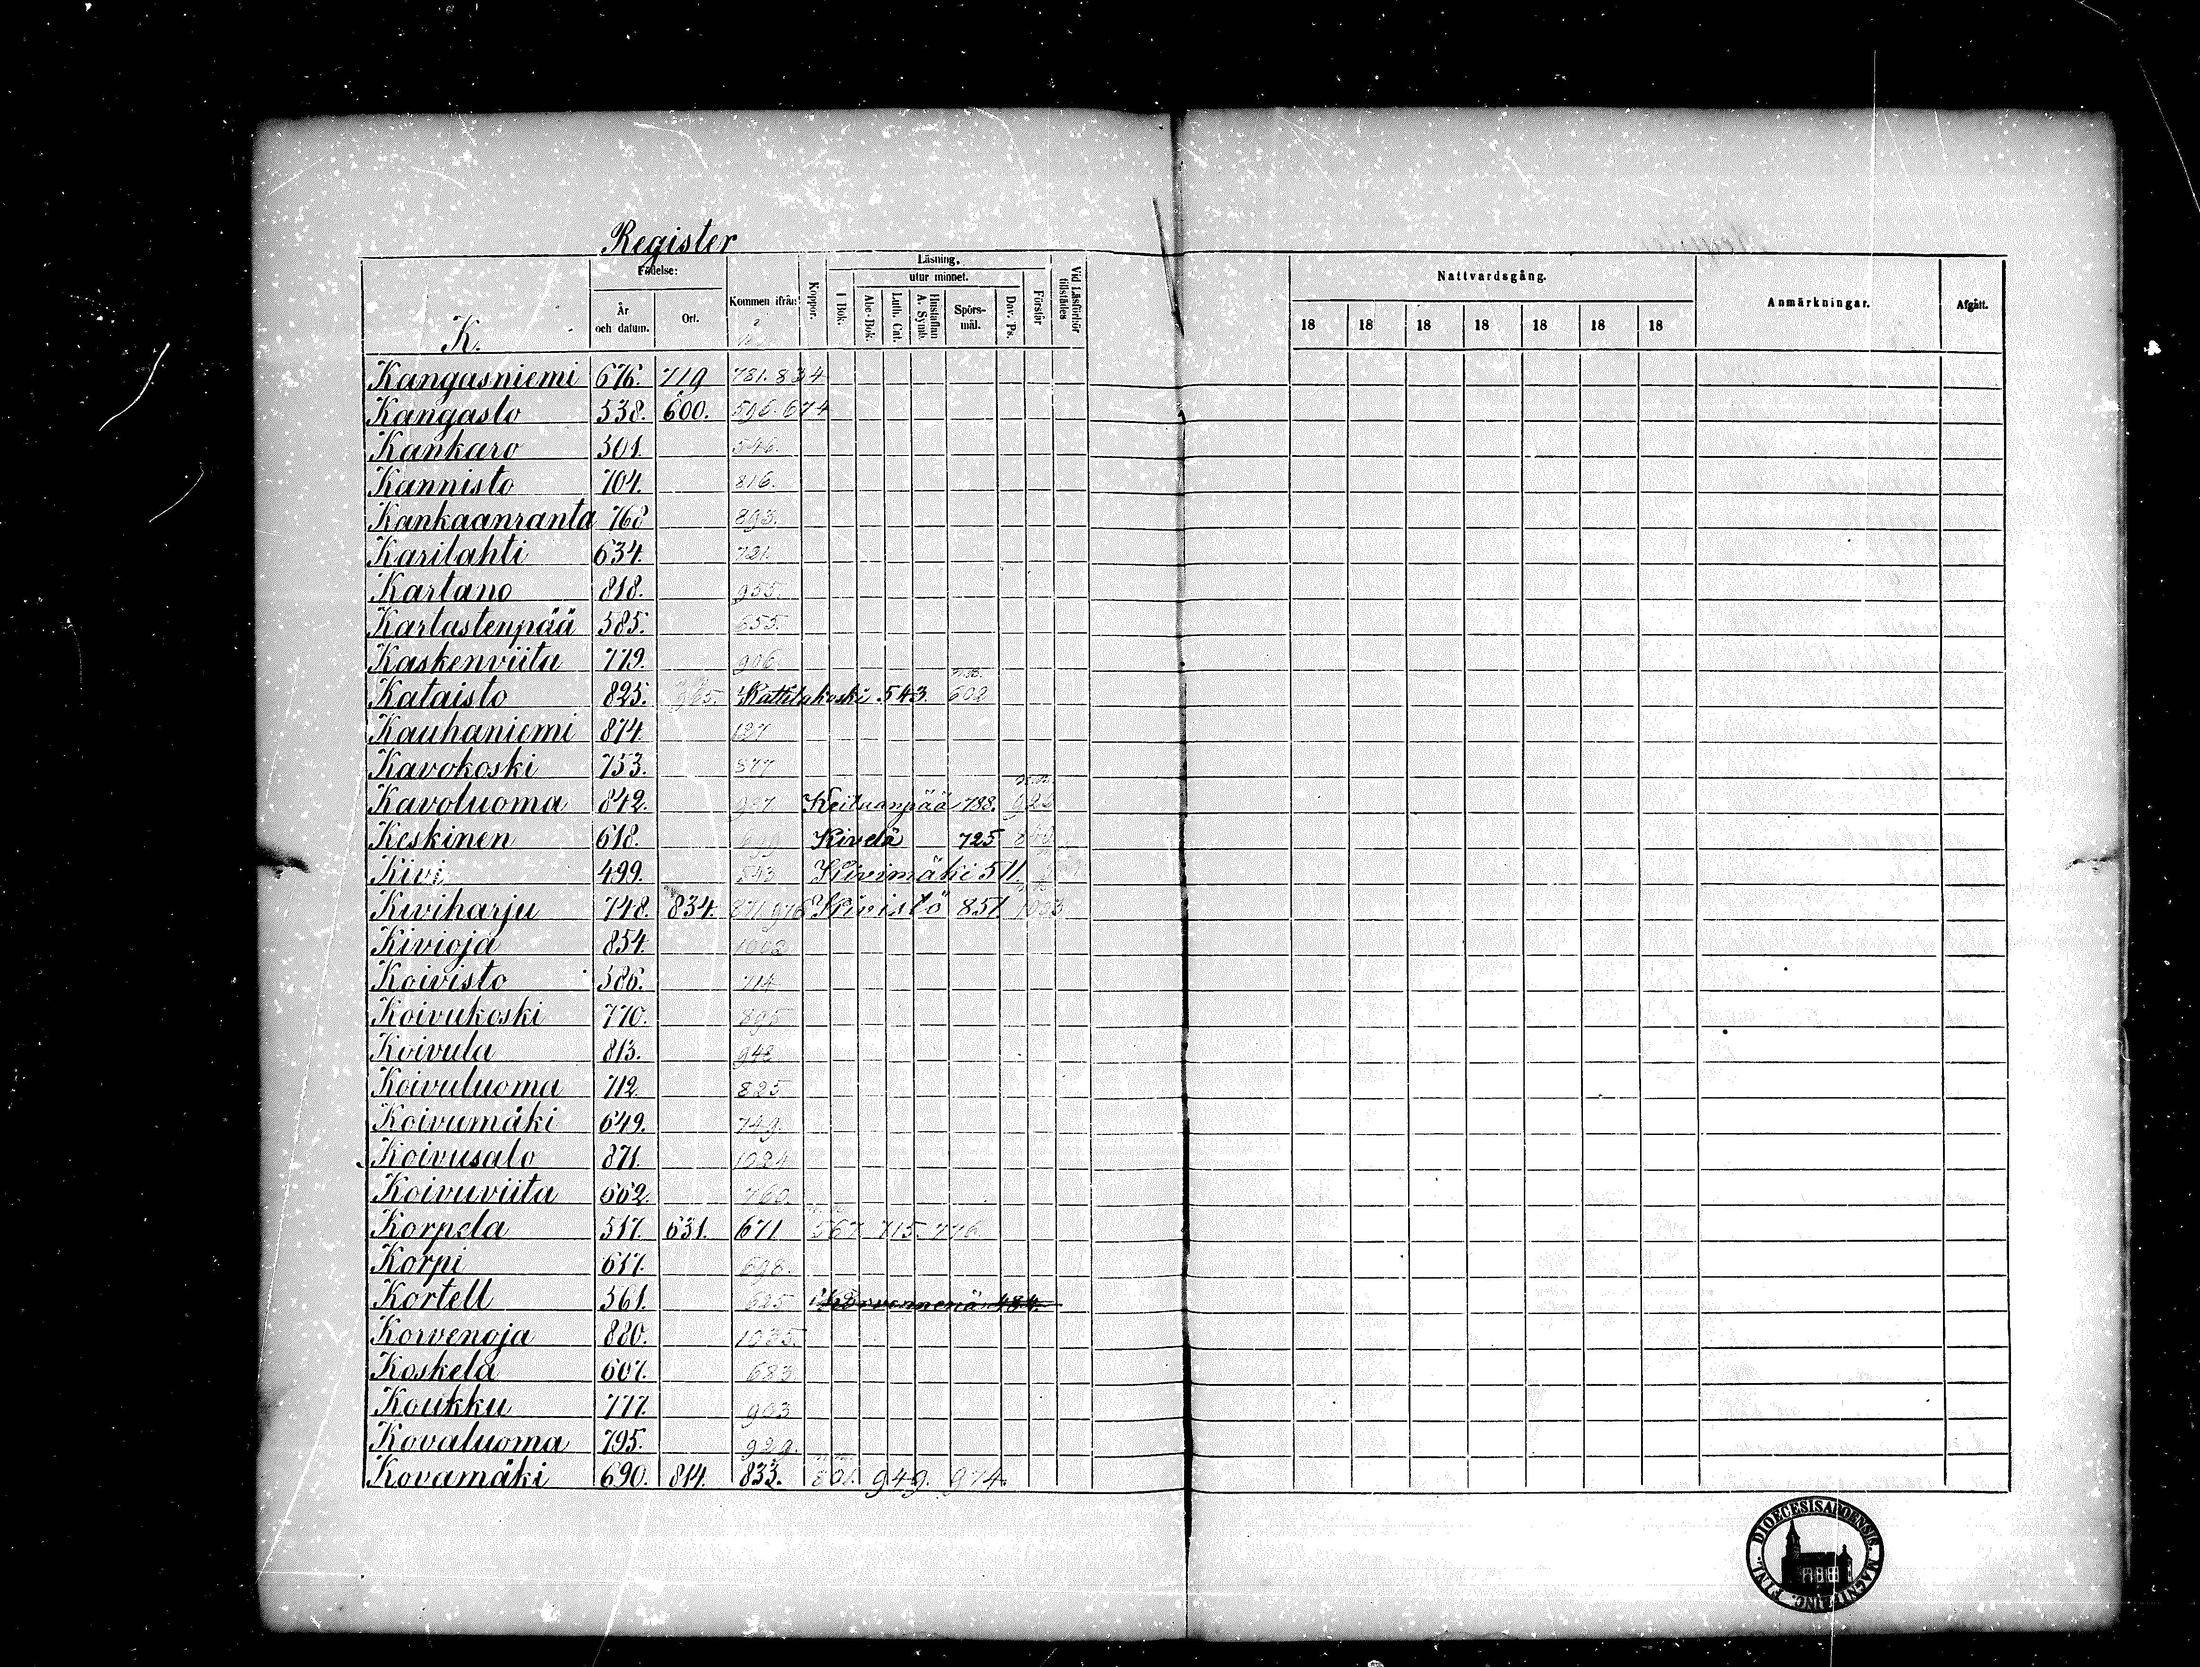 Register
Födelse:
År och datum.
Ort.
Kommen ifrån:
Koppor.
Läsning,
utur minnet.
I Bok.
Abc-Bok.
Luth. Cat.
Hustaflan A. Symb.
Spörs-mål.
Dav. Ps.
Förstår
Vid Läsförhör tillstädes
Nattvardsgång.
18 18 18 18 18 18 18
Anmärkningar.
Afgått.
K.
Kangasniemi 676. 719 781. 834
Kangasto 538. 600. 596. 674
Kankaro 501. 546.
Kannisto 704. 816.
Kankaanranta 768 893.
Karilahti 634. 721.
Kartano 818. 955.
Kartastenpää 585. 655.
Kaskenviita 779. 906.
Kataisto 825. 965. Kattilakoski 543. 602
Kauhaniemi 874. 137
Kavokoski 753. 877
Kavoluoma 842. 987 Keiluanpää 788. 922
Keskinen 618. 699 Kivelä 725
Kivi 499. 543 Kivimäki 511.
Kiviharju 748. 834. 871. 976 Kivistö 851. 1003
Kivioja 854. 1002
Koivisto 586. 714
Koivukoski 770. 895
Koivula 813. 948
Koivuluoma 712. 825
Koivumäki 649. 749.
Koivusalo 871. 1024
Koivuviita 662. 760.
Korpela 517. 631. 671 567. 715. 776.
Korpi 617. 698.
Kortell 561. 625 484.
Korvenoja 880. 1035.
Koskela 607. 683
Koukku 777. 903
Kovaluoma 795. 929.
Kovamäki 690. 814. 833. 801. 949. 974.
DIOECESIS ABOENSIS. MAGNI PRINC. FINL.